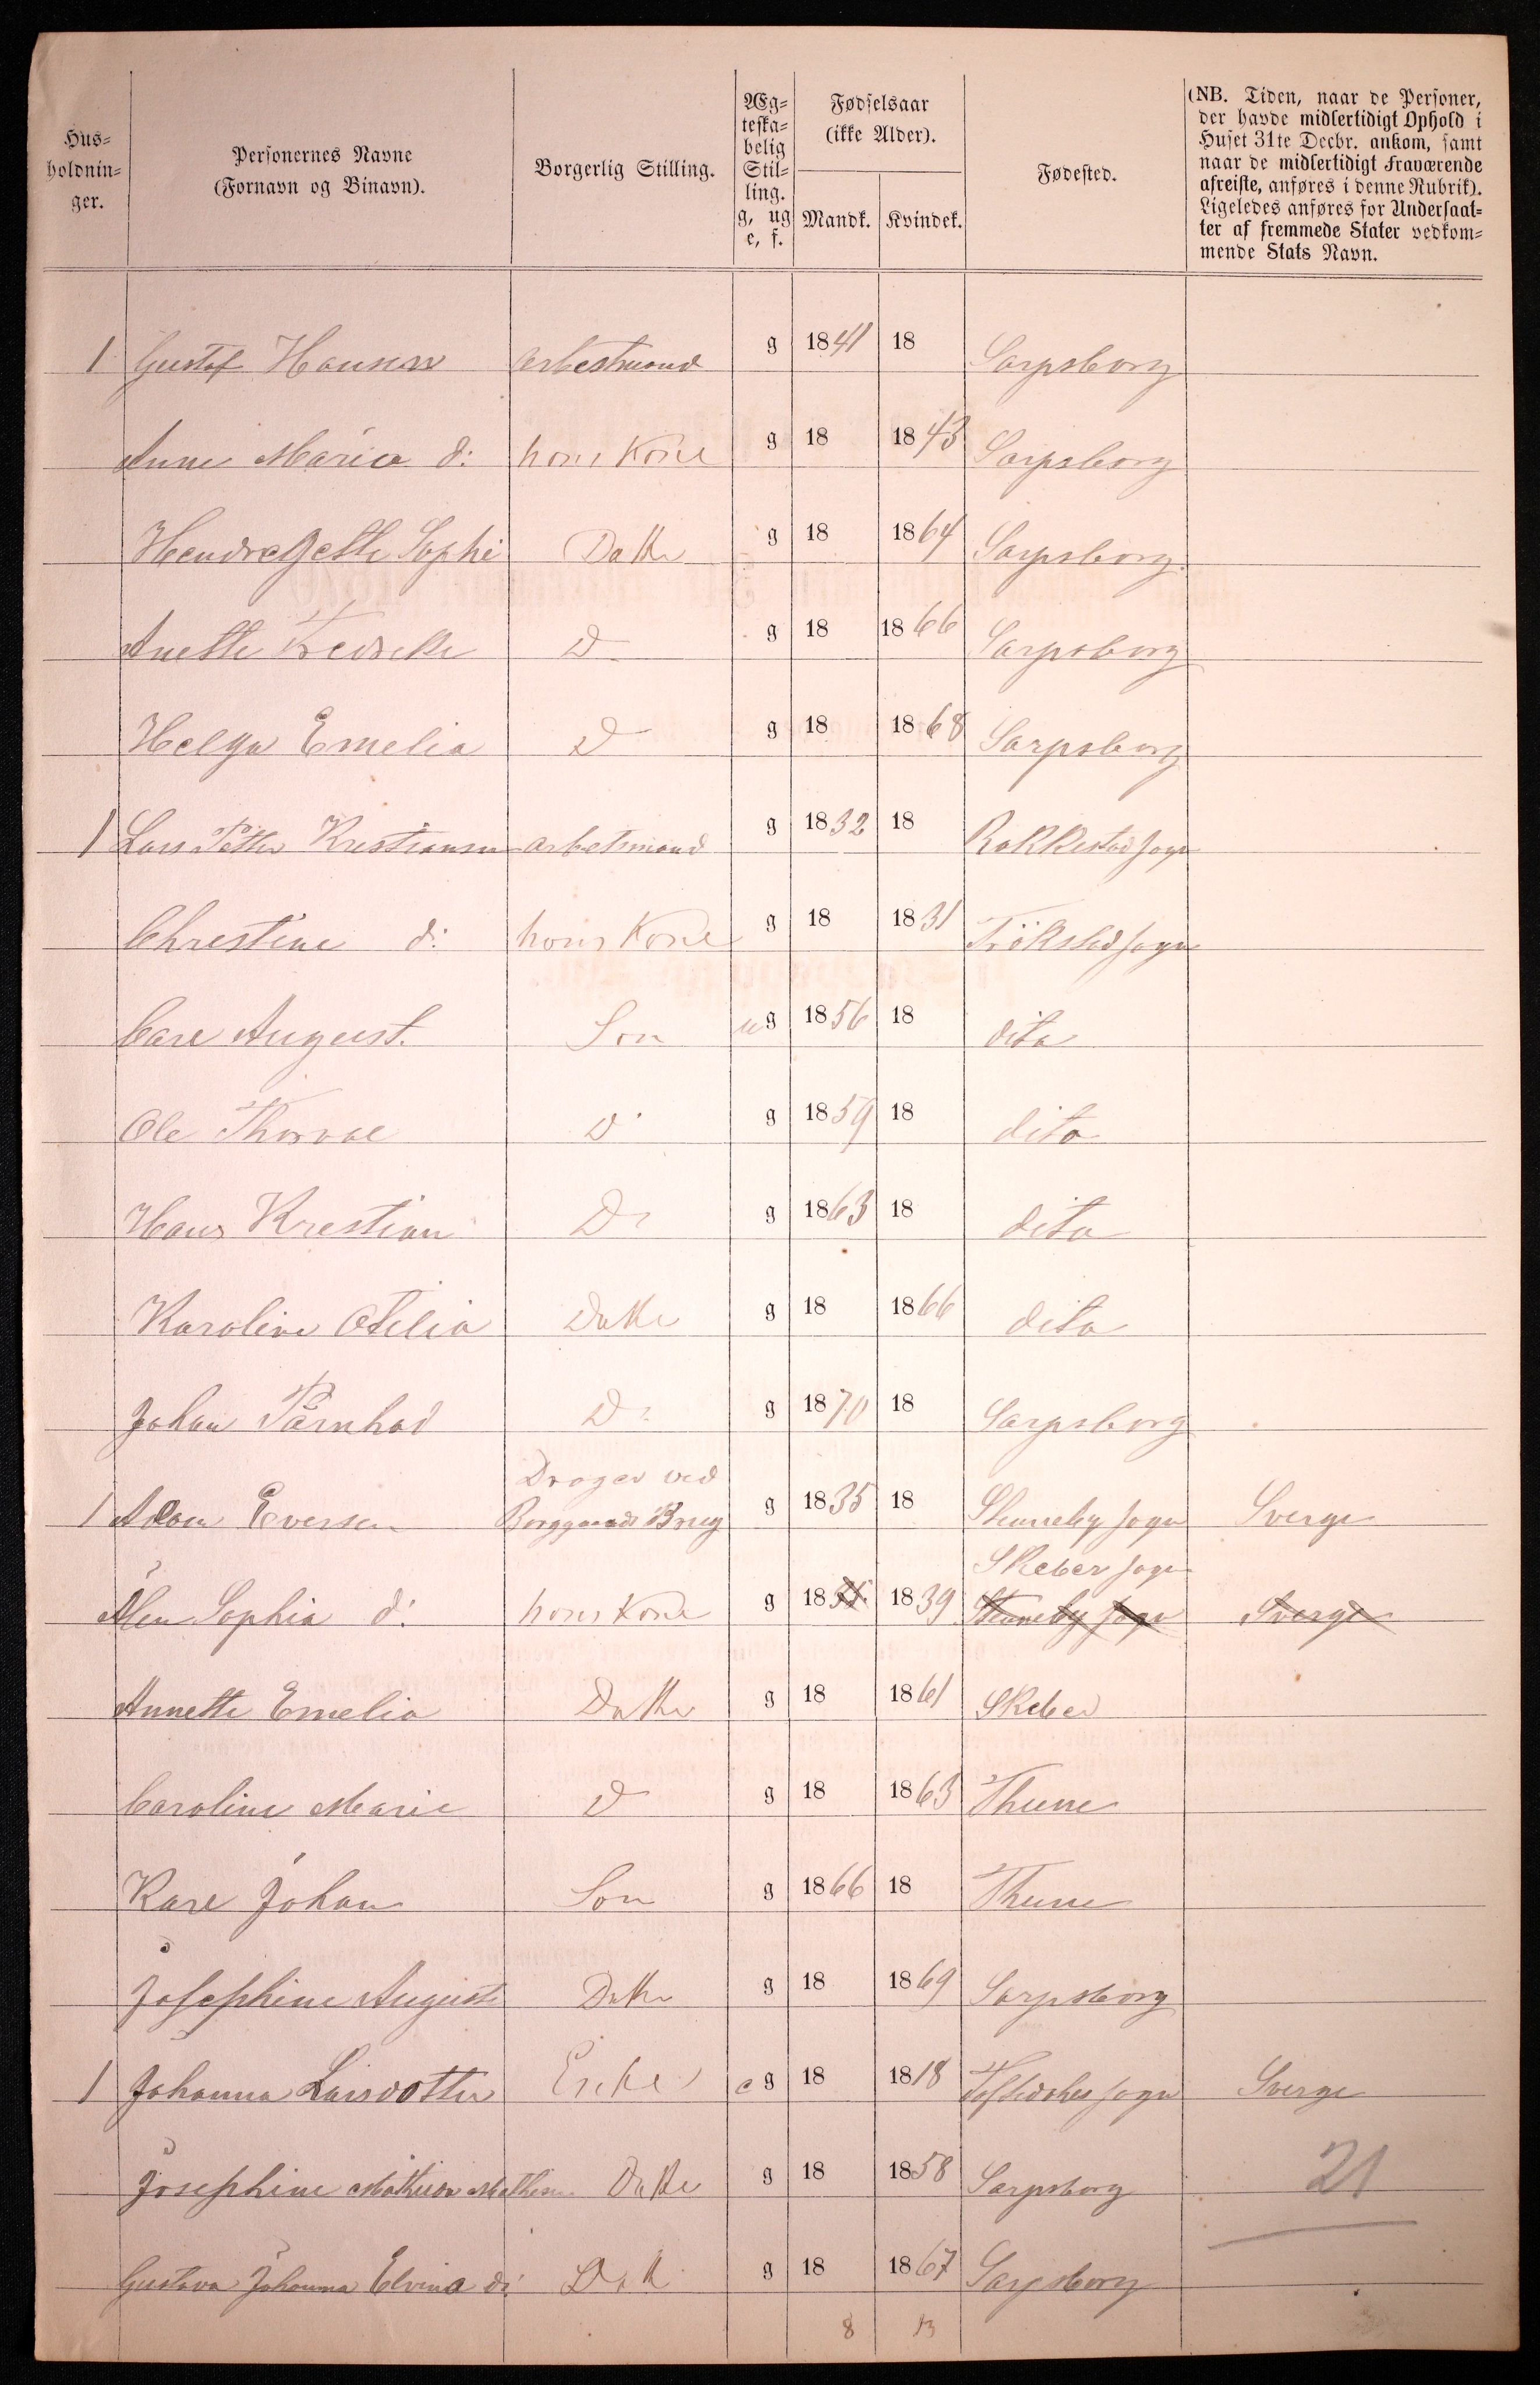 Hus-
holdnin-
ger.
Personernes Navne
(Fornavn og Binavn).
Borgerlig Stilling.
Æg-
teska-
belig
Stil-
ling.
g, ug
e, f.
Fødselsaar
(ikke Alder).
Mandk. Kvindek.
Fødested.
(NB. Tiden, naar de Personer,
der havde midlertidigt Ophold i
Huset 31te Decbr. ankom, samt
naar de midlertidigt fraværende
afreiste, anføres i denne Rubrik).
Ligeledes anføres for Undersaat-
ter af fremmede Stater vedkom-
mende Stats Navn.
1 Gustaf Hansen Arbestmand g 1841 18 Sarpsborg
Anne Maria d: hans Kone g 18 1843 Sarpsborg
Hendregette Sophi Datter g 18 1864 Sarpsborg
Anette Fredrekke D g 18 1866 Sarpsborg
Helga Emelia D g 18 1868 Sarpsborg
1 Lars Petter Krestiansen arbetsmand g 1832 18 Rakkestad sogn
Chrestine d: hans Kone g 18 1831 Trökstad sogn
Carl August. Son ug 1856 18 dita
Ole Thorval D g 1859 18 dito
Hans Krestian Do g 1863 18 dita
Karoline Otelia Datter g 18 1866 dita
Johan Pärnhad Do g 1870 18 Sarpsborg
Drager ved
1 Adam Eversen Borggaards Brug g 1835 18 Stenneby sogn Sverge
Skeber sogn
Älen Sophia d: hans Kone g 1835 1839 Stenneby sogn Sverge
Annette Emelia Datter g 18 1861 Skeber
Caroline Marie D g 18 1863 Thune
Karl Johan Son g 1866 18 Thune
Josephine Auguste Datter g 18 1869 Sarpsborg
1 Johanna Larsdotter Enke eg 18 1818 sogn Sverge
Josephine Mathea Mathisen Datter g 18 1858 Sarpsborg
21
Gustava Johanna Elvina d: Datt g 18 1867 Sarpsborg
8 13